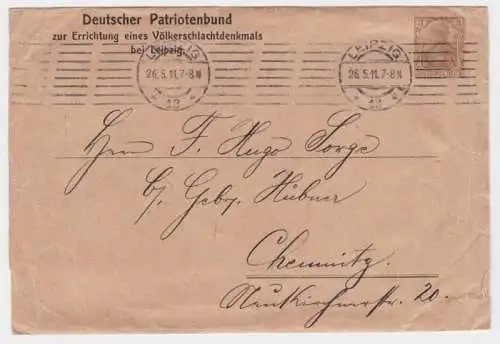 Deutscher Patriotenbund
zur Errichtung eines Völkerschlachtdenkmals
bei Leipzig.
LEIPZIG
26.5.11.7-8N
* 13 *
LEIPZIG
26.5.11.7-8N
* 13 *
Herrn F. Hugo Sorge
b/ Gebr. Hübner
Chemnitz.
Neukirchnerstr. 20.